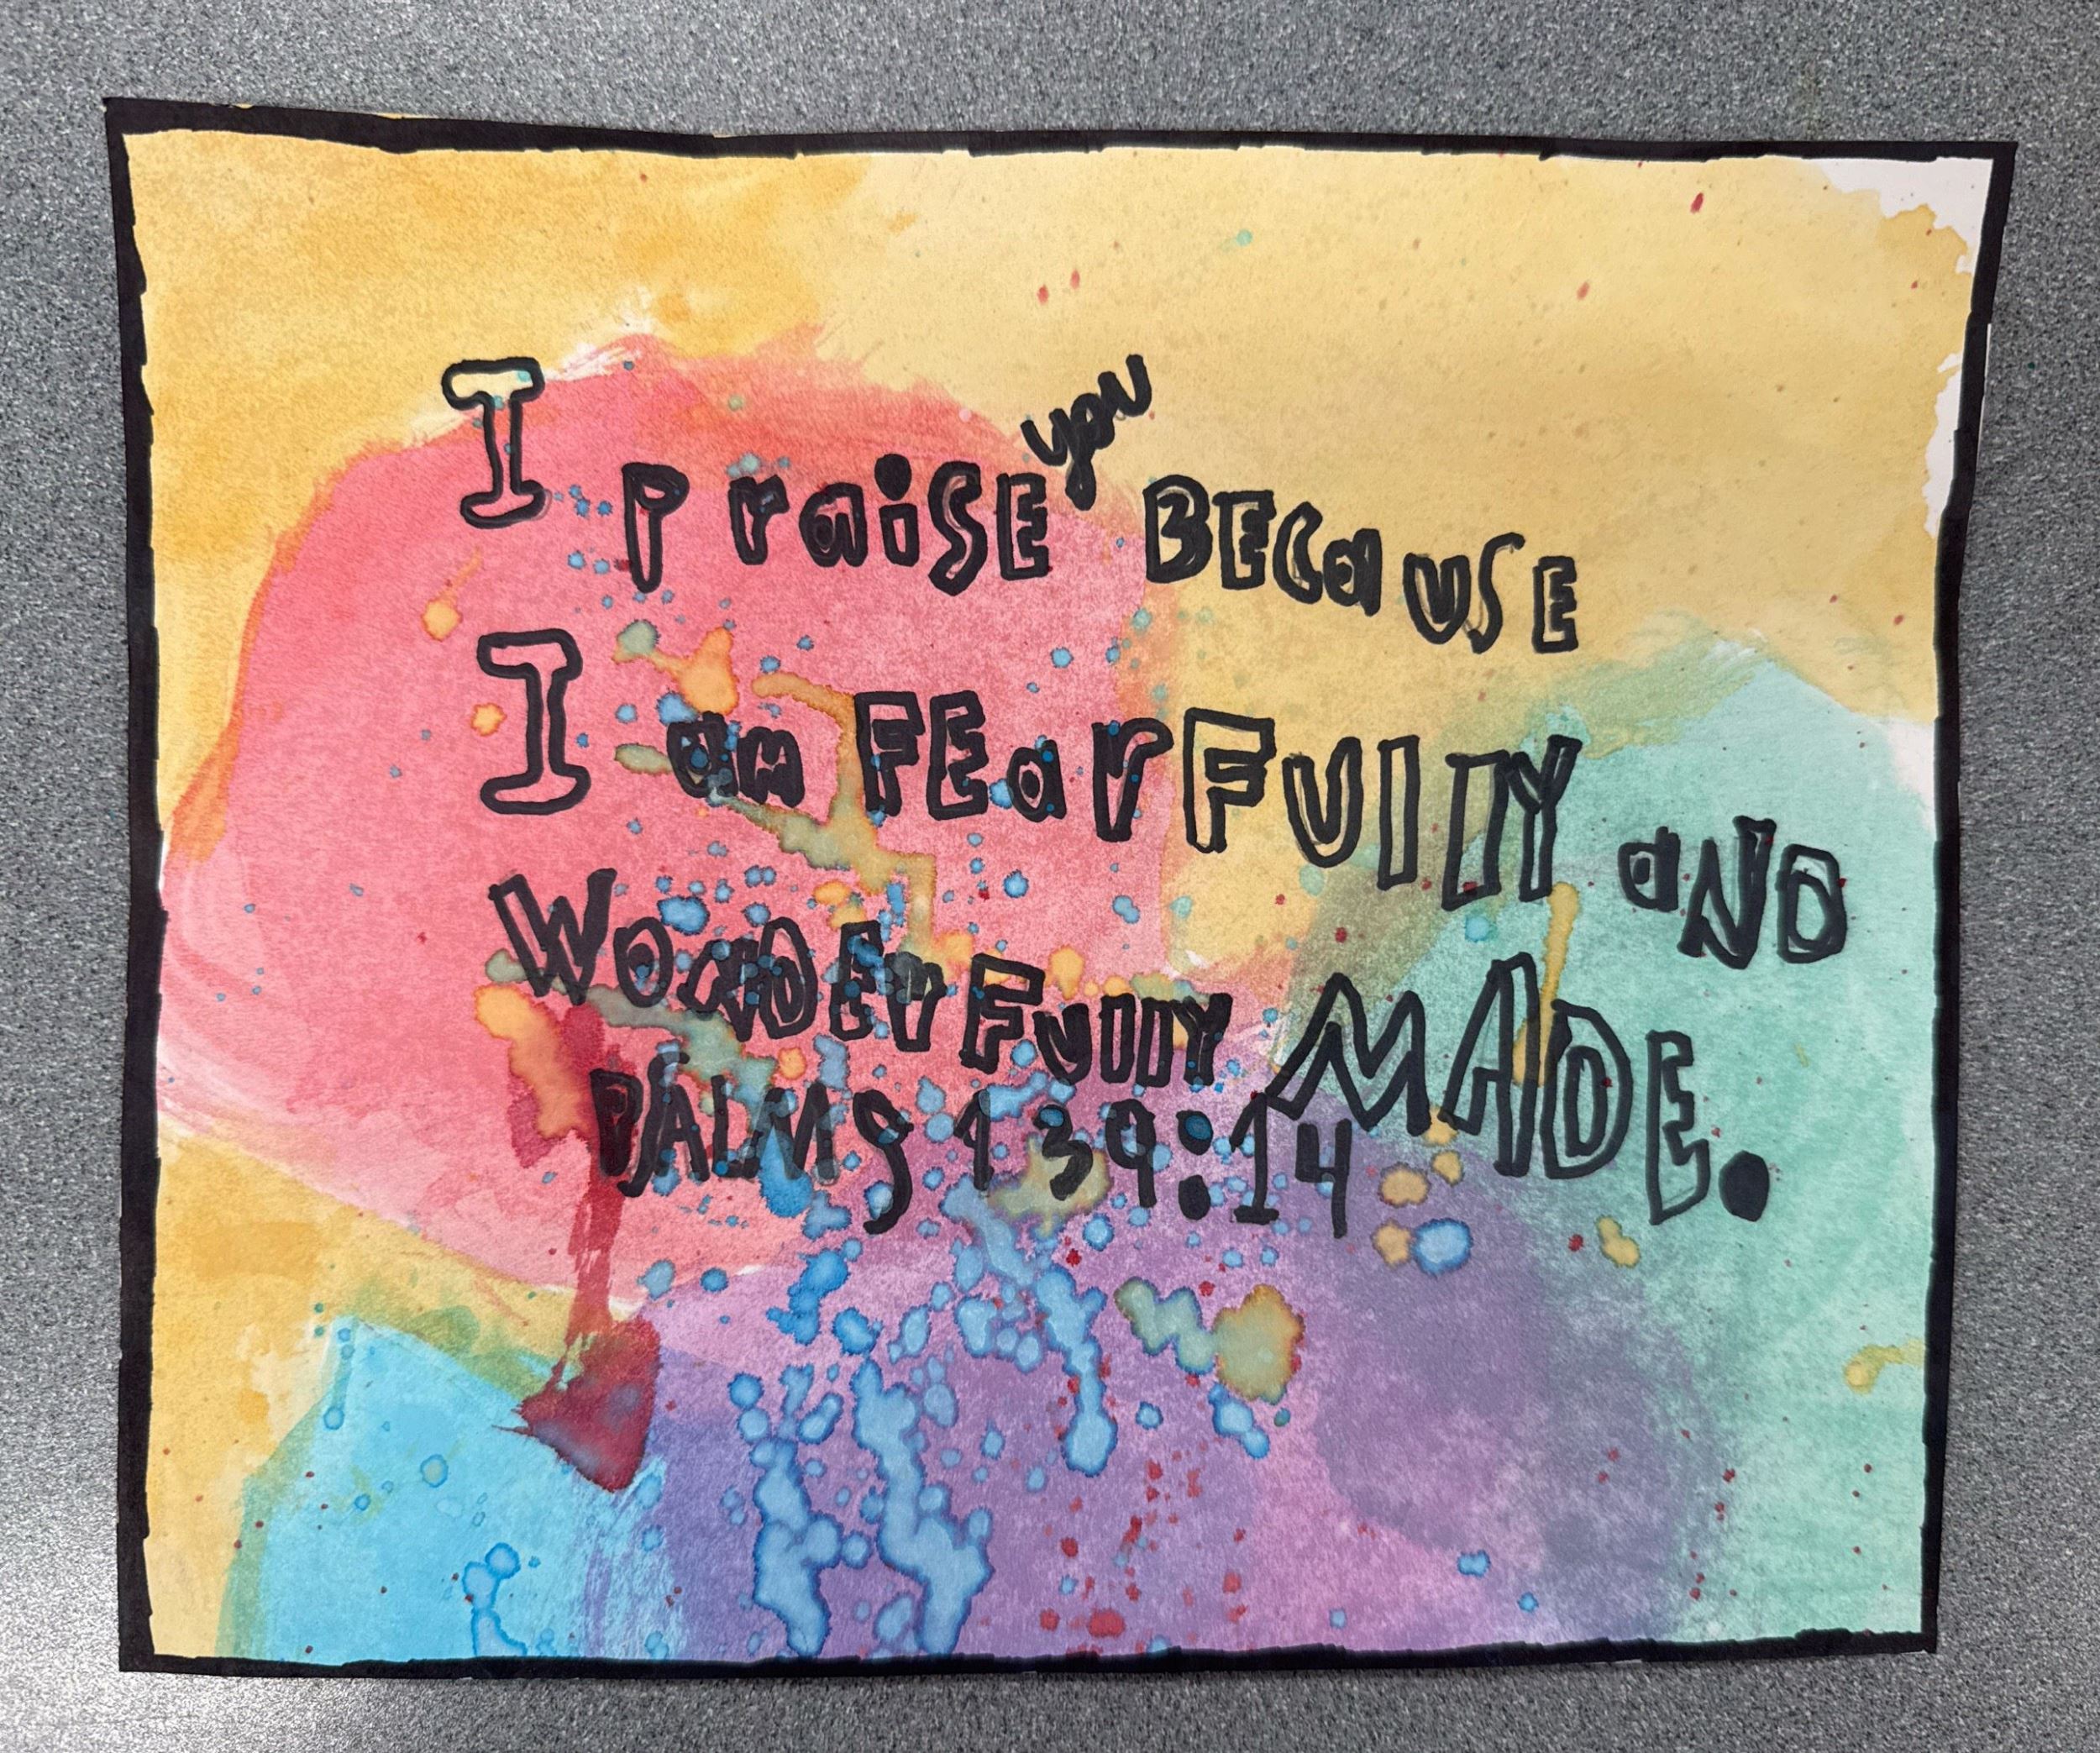 I praiSE you BECauSE
I am FEarFully aND
WONDErFully MADE.
PSALMS 139:14